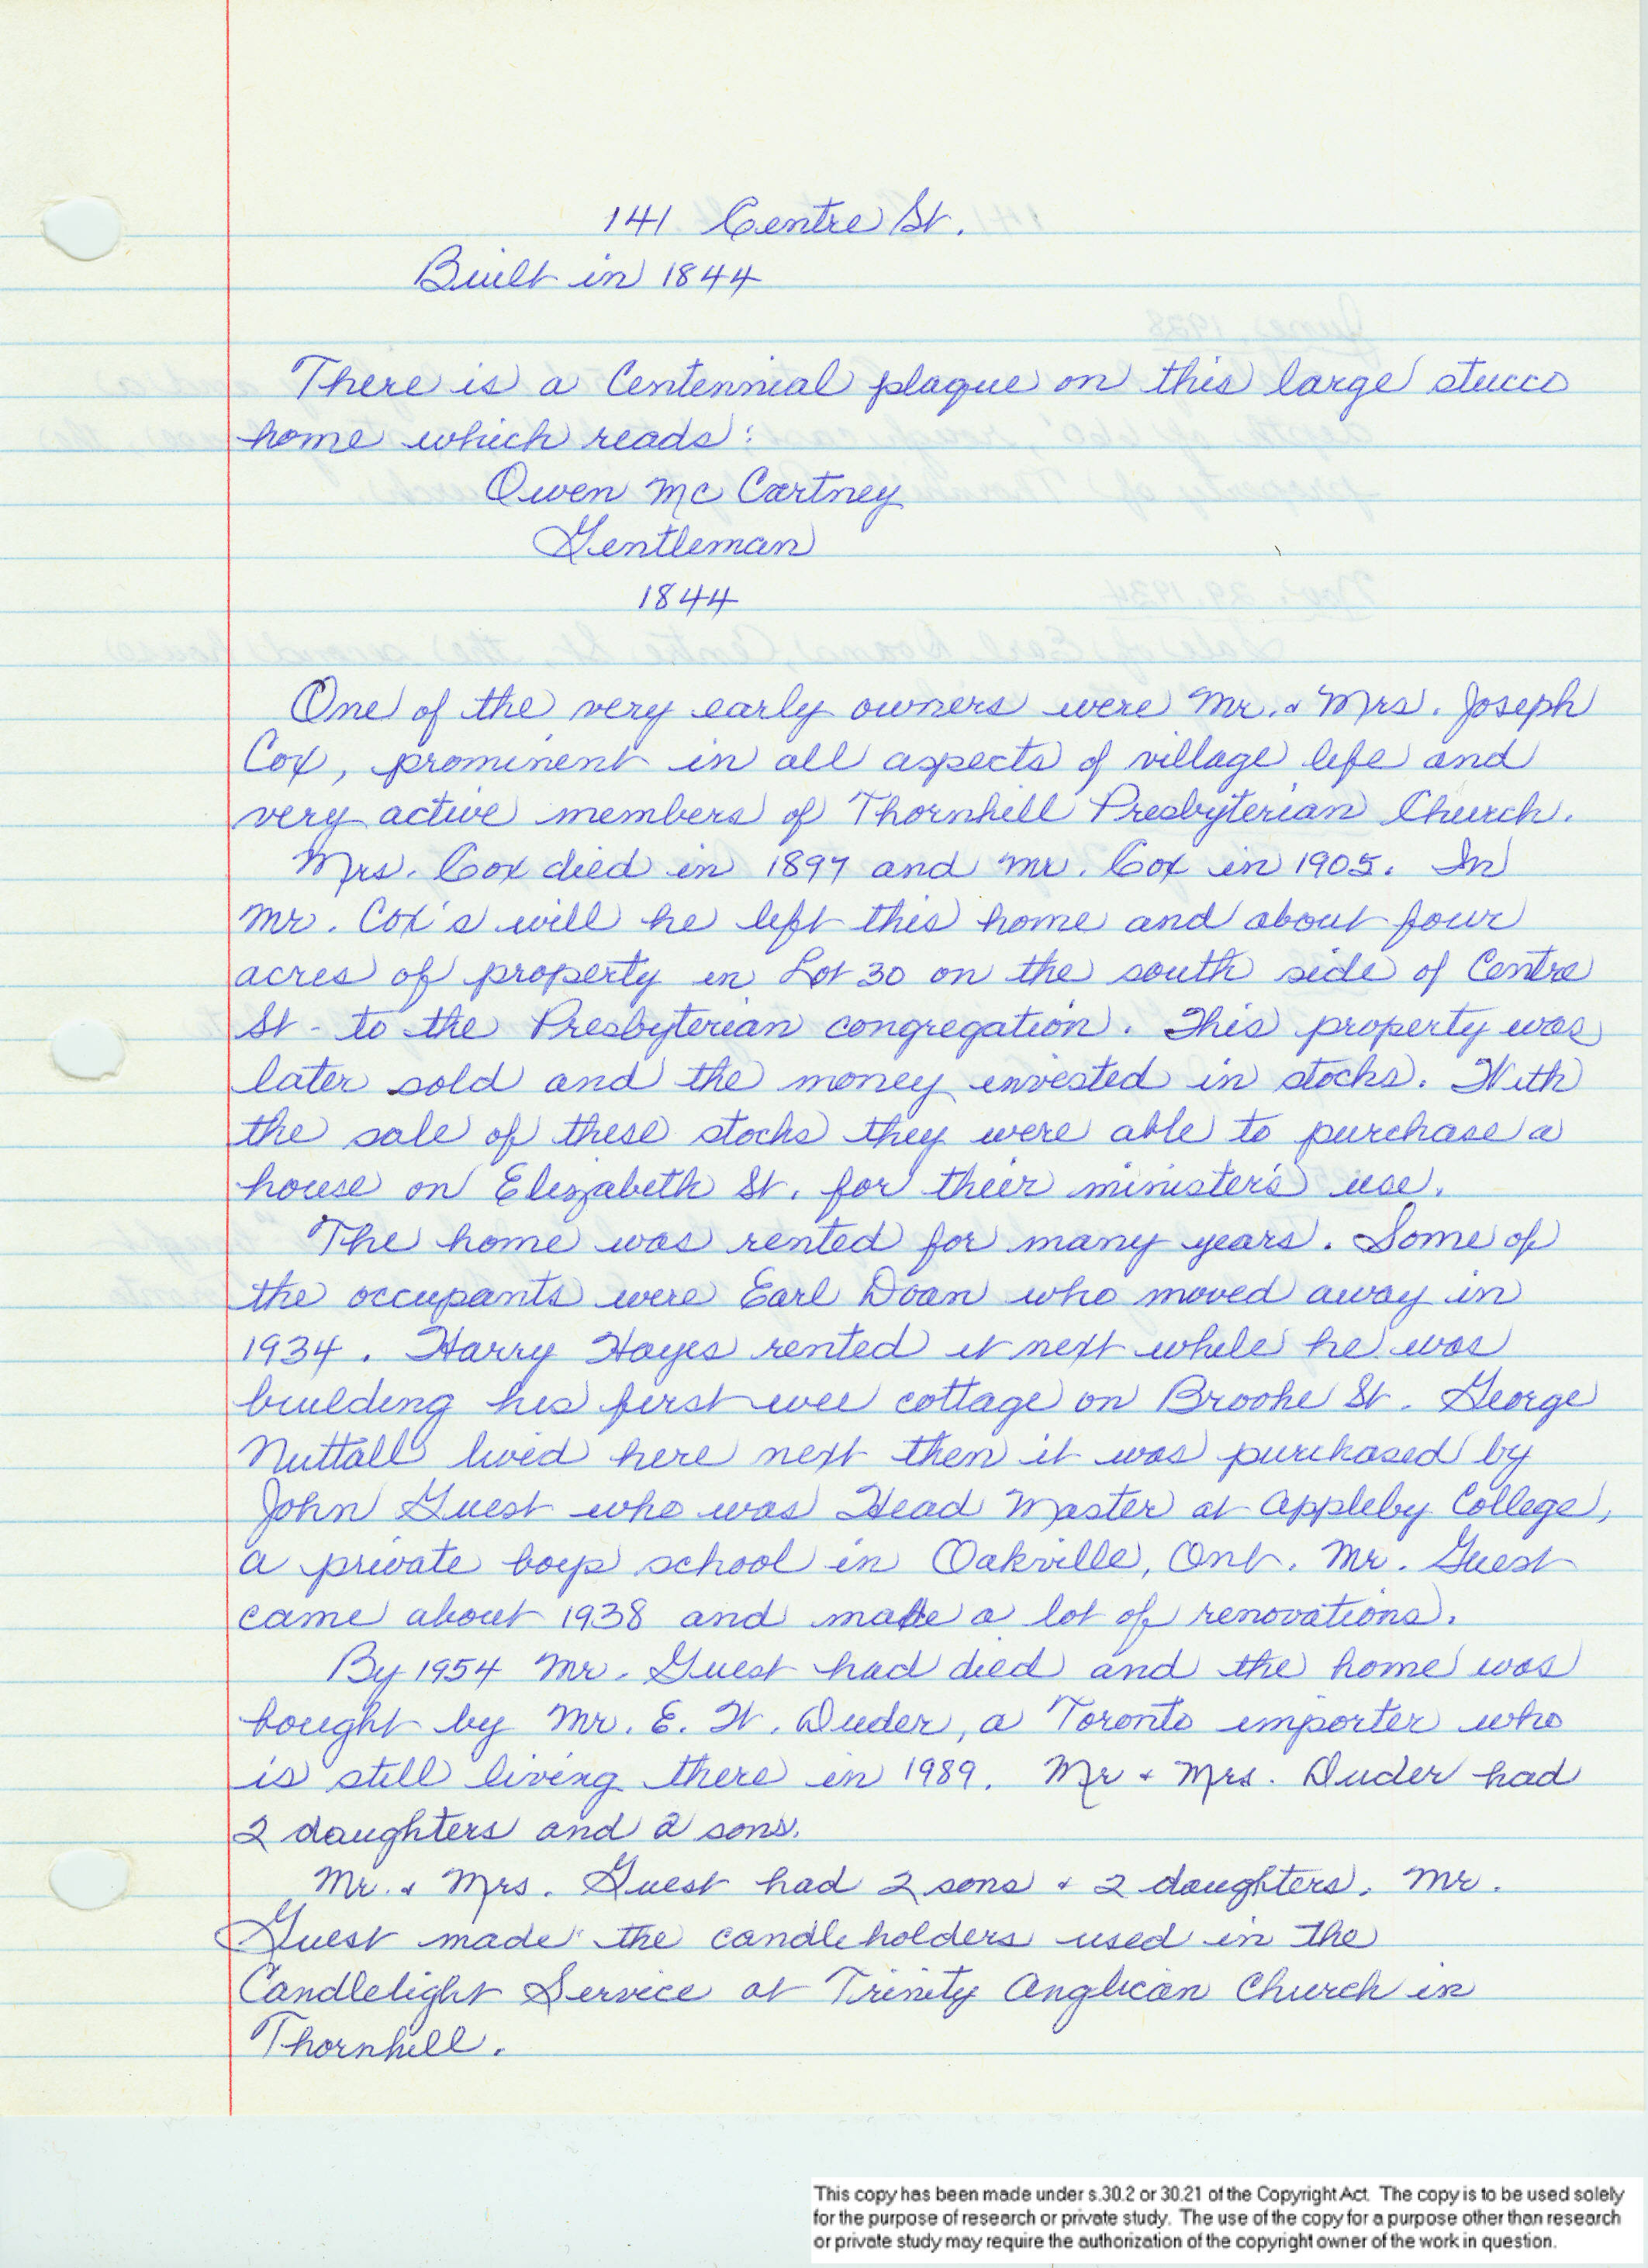 141 Centre St.
Built in 1844
There is a Centennial plaque on this large stucco
home which reads:
Owen Mc Cartney
Gentleman
1844
One of the very early owners were Mr. & Mrs. Joseph
Cox, prominent in all aspects of village life and
very active members of Thornhill Presbyterian Church.
Mrs. Cox died in 1897 and Mr. Cox in 1905. In
Mr. Cox's will he left this home and about four
acres of property in Lot 30 on the south side of Centre
St - to the Presbyterian congregation. This property was
later sold and the money invested in stocks. With
the sale of these stocks they were able to purchase a
house on Elizabeth St. for their minister's use.
The home was rented for many years. Some of
the occupants were Earl Doan who moved away in
1934. Harry Hayes rented it next while he was
building his first wee cottage on Brooke St. George
Nuttall lived here next then it was purchased by
John Guest who was Head Master at Appleby College,
a private boys school in Oakville, Ont. Mr. Guest
came about 1938 and made a lot of renovations.
By 1954 Mr. Guest had died and the home was
bought by Mr. E. W. Duder, a Toronto importer who
is still living there in 1989. Mr & Mrs. Duder had
2 daughters and 2 sons.
Mr. & Mrs. Guest had 2 sons & 2 daughters. Mr.
Guest made the candleholders used in the
Candlelight Service at Trinity Anglican Church in
Thornhill.
This copy has been made under s.30.2 or 30.21 of the Copyright Act. The copy is to be used solely
for the purpose of research or private study. The use of the copy for a purpose other than research
or private study may require the authorization of the copyright owner of the work in question.